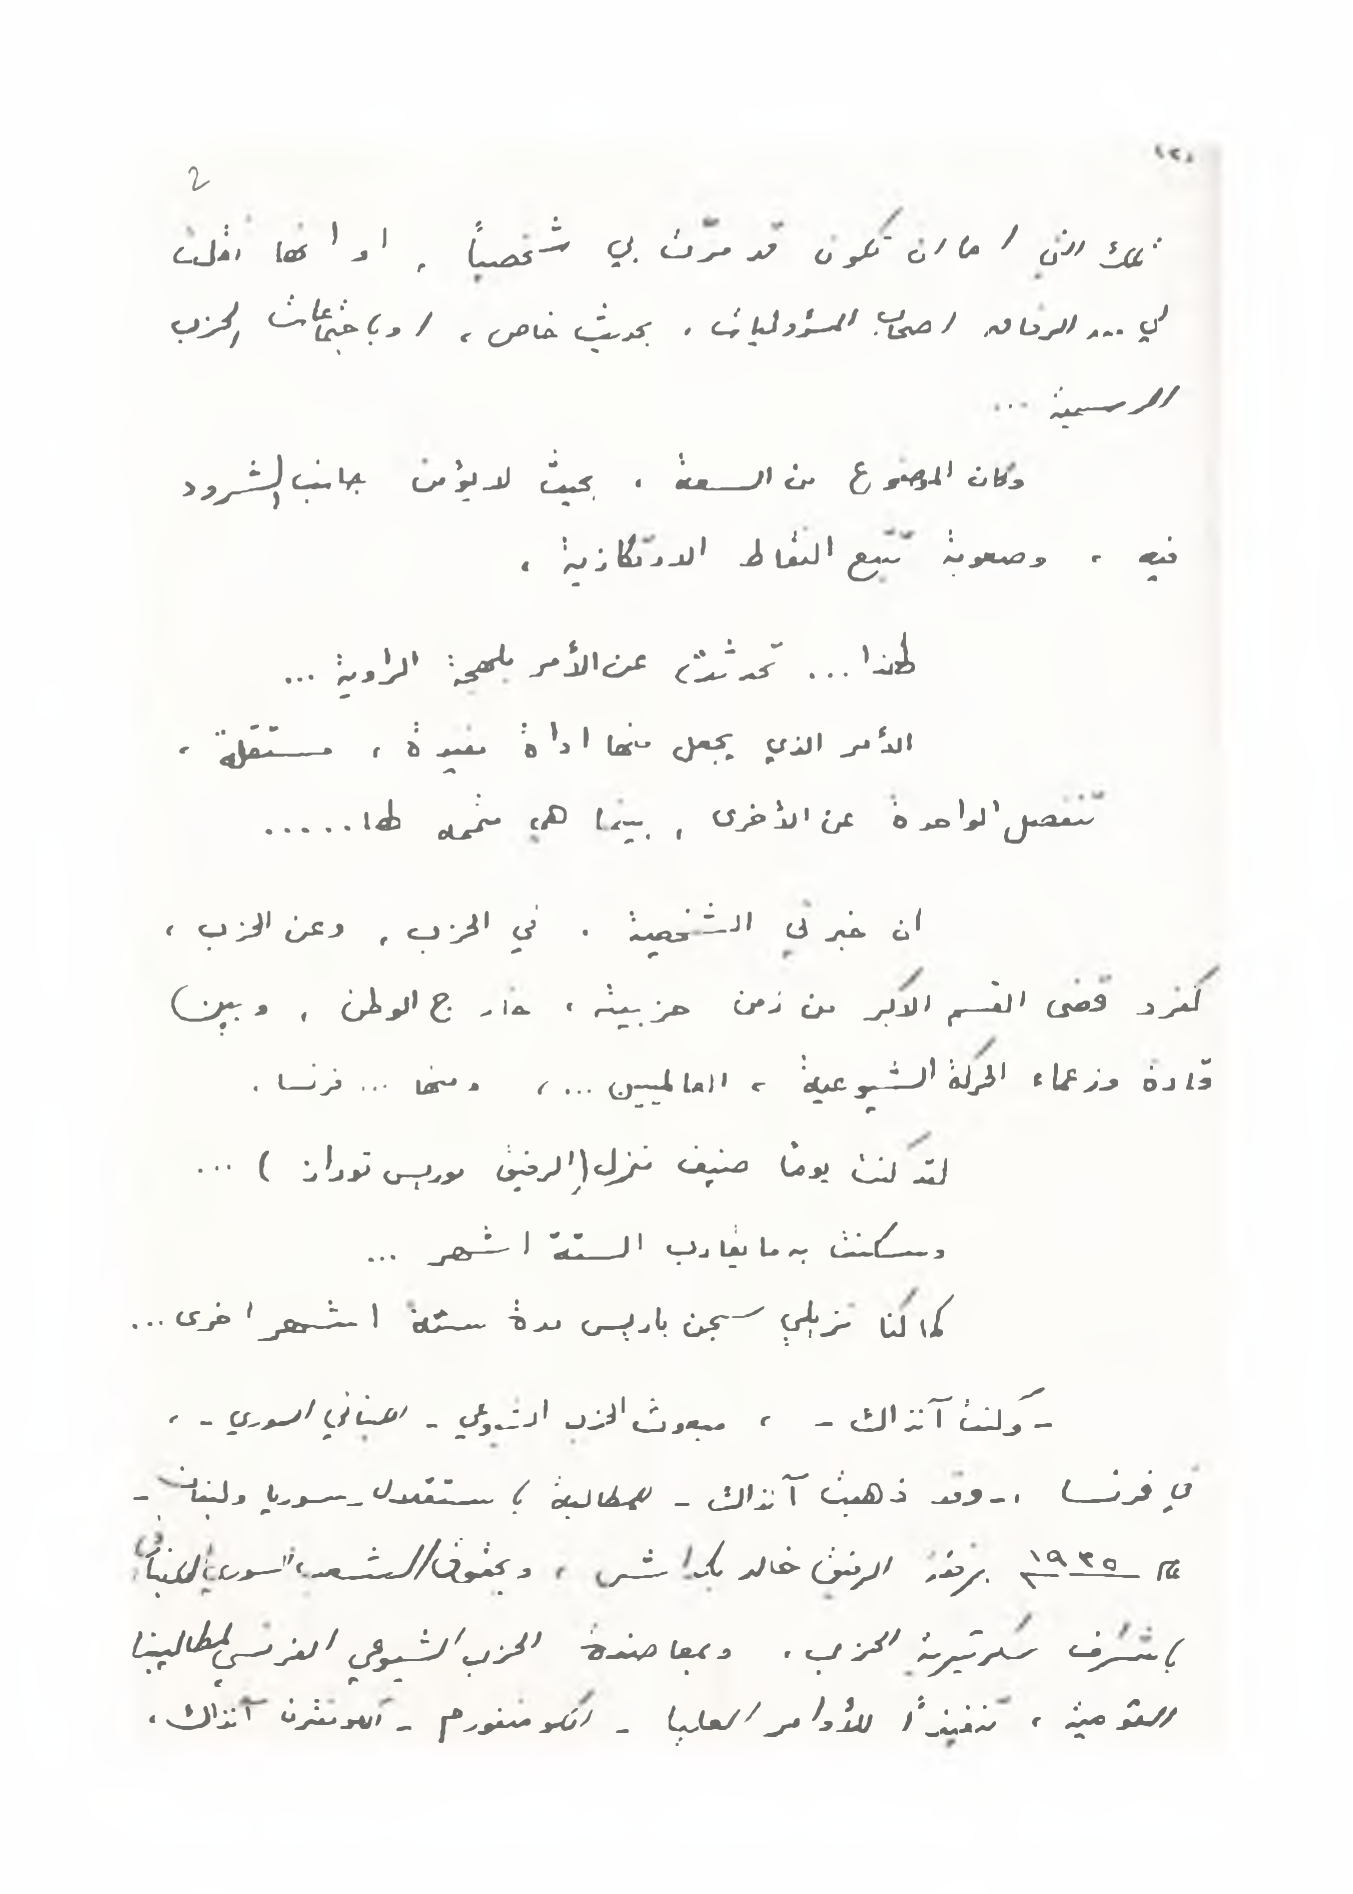 (٢)
2
تلك التي اما ان تكون قد مرّت بي شخصياً ، او انها نقلت
لي ... الرفاق اصحاب المسؤوليات ، بحديث خاص ، او باجتماعات الحزب
الرسمية ...
وكان الموضوع من السعة ، بحيث لا يؤمن جانب الشرود
فيه ، وصعوبة تتبع النقاط الارتكازية ،
لهذا ... تحدثت عن الأمر بلهجة الراوية ...
الأمر الذي يجعل منها اداة مفيدة ، مستقلة ،
تنفصل الواحدة عن الأخرى ، بينما هي متممه لها......
ان خبرتي الشخصية . في الحزب ، وعن الحزب ،
كفرد قضى القسم الاكبر من زمن حزبيته ، خارج الوطن ، وبين
قادة وزعماء الحركة الشيوعية ، العالميين ... ، ومنها ... فرنسا .
لقد كنت يوماً ضيف منزل (الرفيق موريس توراز ) ...
وسكنت به ما يقارب الستة اشهر ...
كما كنا نزيلي سجن باريس مدة ستة اشهر اخرى ...
- وكنت آنذاك - ، مبعوث الحزب الشيوعي - اللبناني السوري - ،
في فرنسا ،- وقد ذهبت آنذاك - للمطالبة باستقلال سوريا ولبنان -
عام ١٩٣٥ برفقة الرفيق خالد بكداش ، وبحقوق الشعب السوري اللبناني
باشراف سكرتيرية الحزب ، وبمعاضدة الحزب الشيوعي الفرنسي لمطاليبنا
القومية ، تنفيذاً للأوامر العليا - الكومنفورم - آنذاك ،